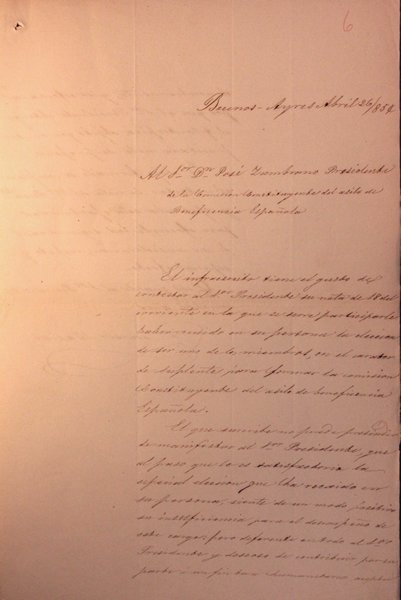 6
Buenos-Ayres Abril 26/852
Al Sor. Dn. José Zambrano Presidente
de la Comision Constituyente del asilo de
Beneficencia Española
El infrascrito tiene el gusto de
contestar al Sor. Presidente su nota de 18 del
corriente en la que se sirve participarle
haber recaido en su persona la eleccion
de ser uno de los miembros, en el caracter
de suplente para formar la comision
Constituyente del asilo de beneficencia
Española.
El que suscribe no puede
de manifestar al Sor. Presidente, que
al paso que le es satisfactoria la
especial eleccion que ha recaido en
su persona, siente de un modo
su insuficiencia para el desempeño de
este cargo; pero deferente en todo al Sor.
Presidente y deseoso de contribuir por su
parte a un fin tan